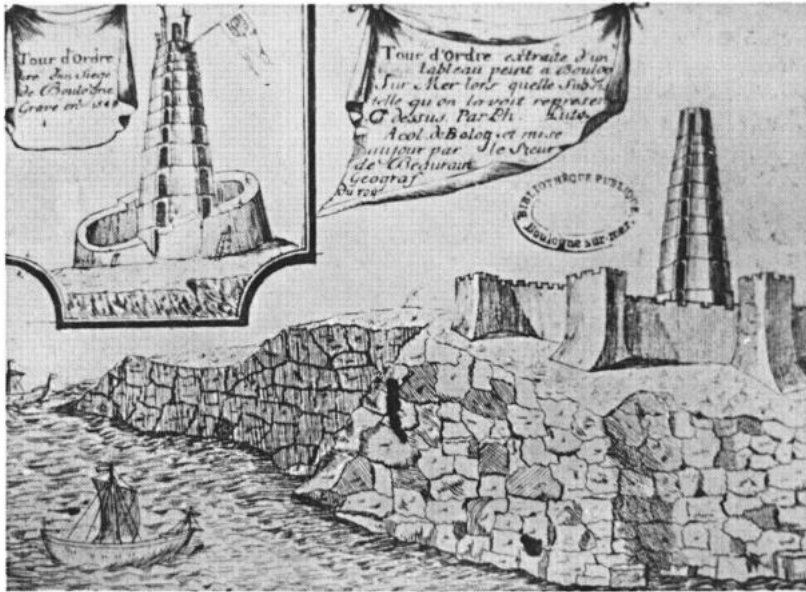 Tour d'Ordre
d'un Siege
de Boulogne
Gravé en 154
Tour d'Ordre extraite d'un
tableau peint a Boulog
Sur Mer lors quelle Subsis
telle qu'on la voit represen
Cy dessus. Par Ph. Luto
Acol. de Bolog. et mise
aujour par le Sieur
de Beaurain
Geograf
Du roy
BIBLIOTHÈQUE PUBLIQUE
Boulogne-sur-mer